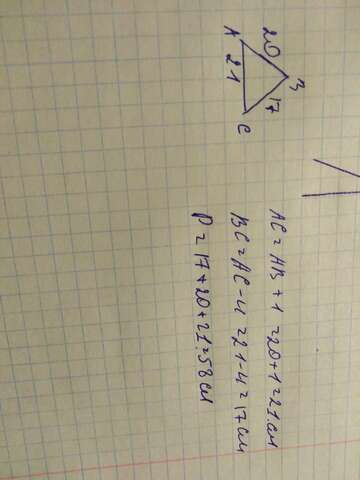 A
20
B
21
17
C
AC = AB + 1 = 20 + 1 = 21 см
BC = AC - 4 = 21 - 4 = 17 см
P = 17 + 20 + 21 = 58 см